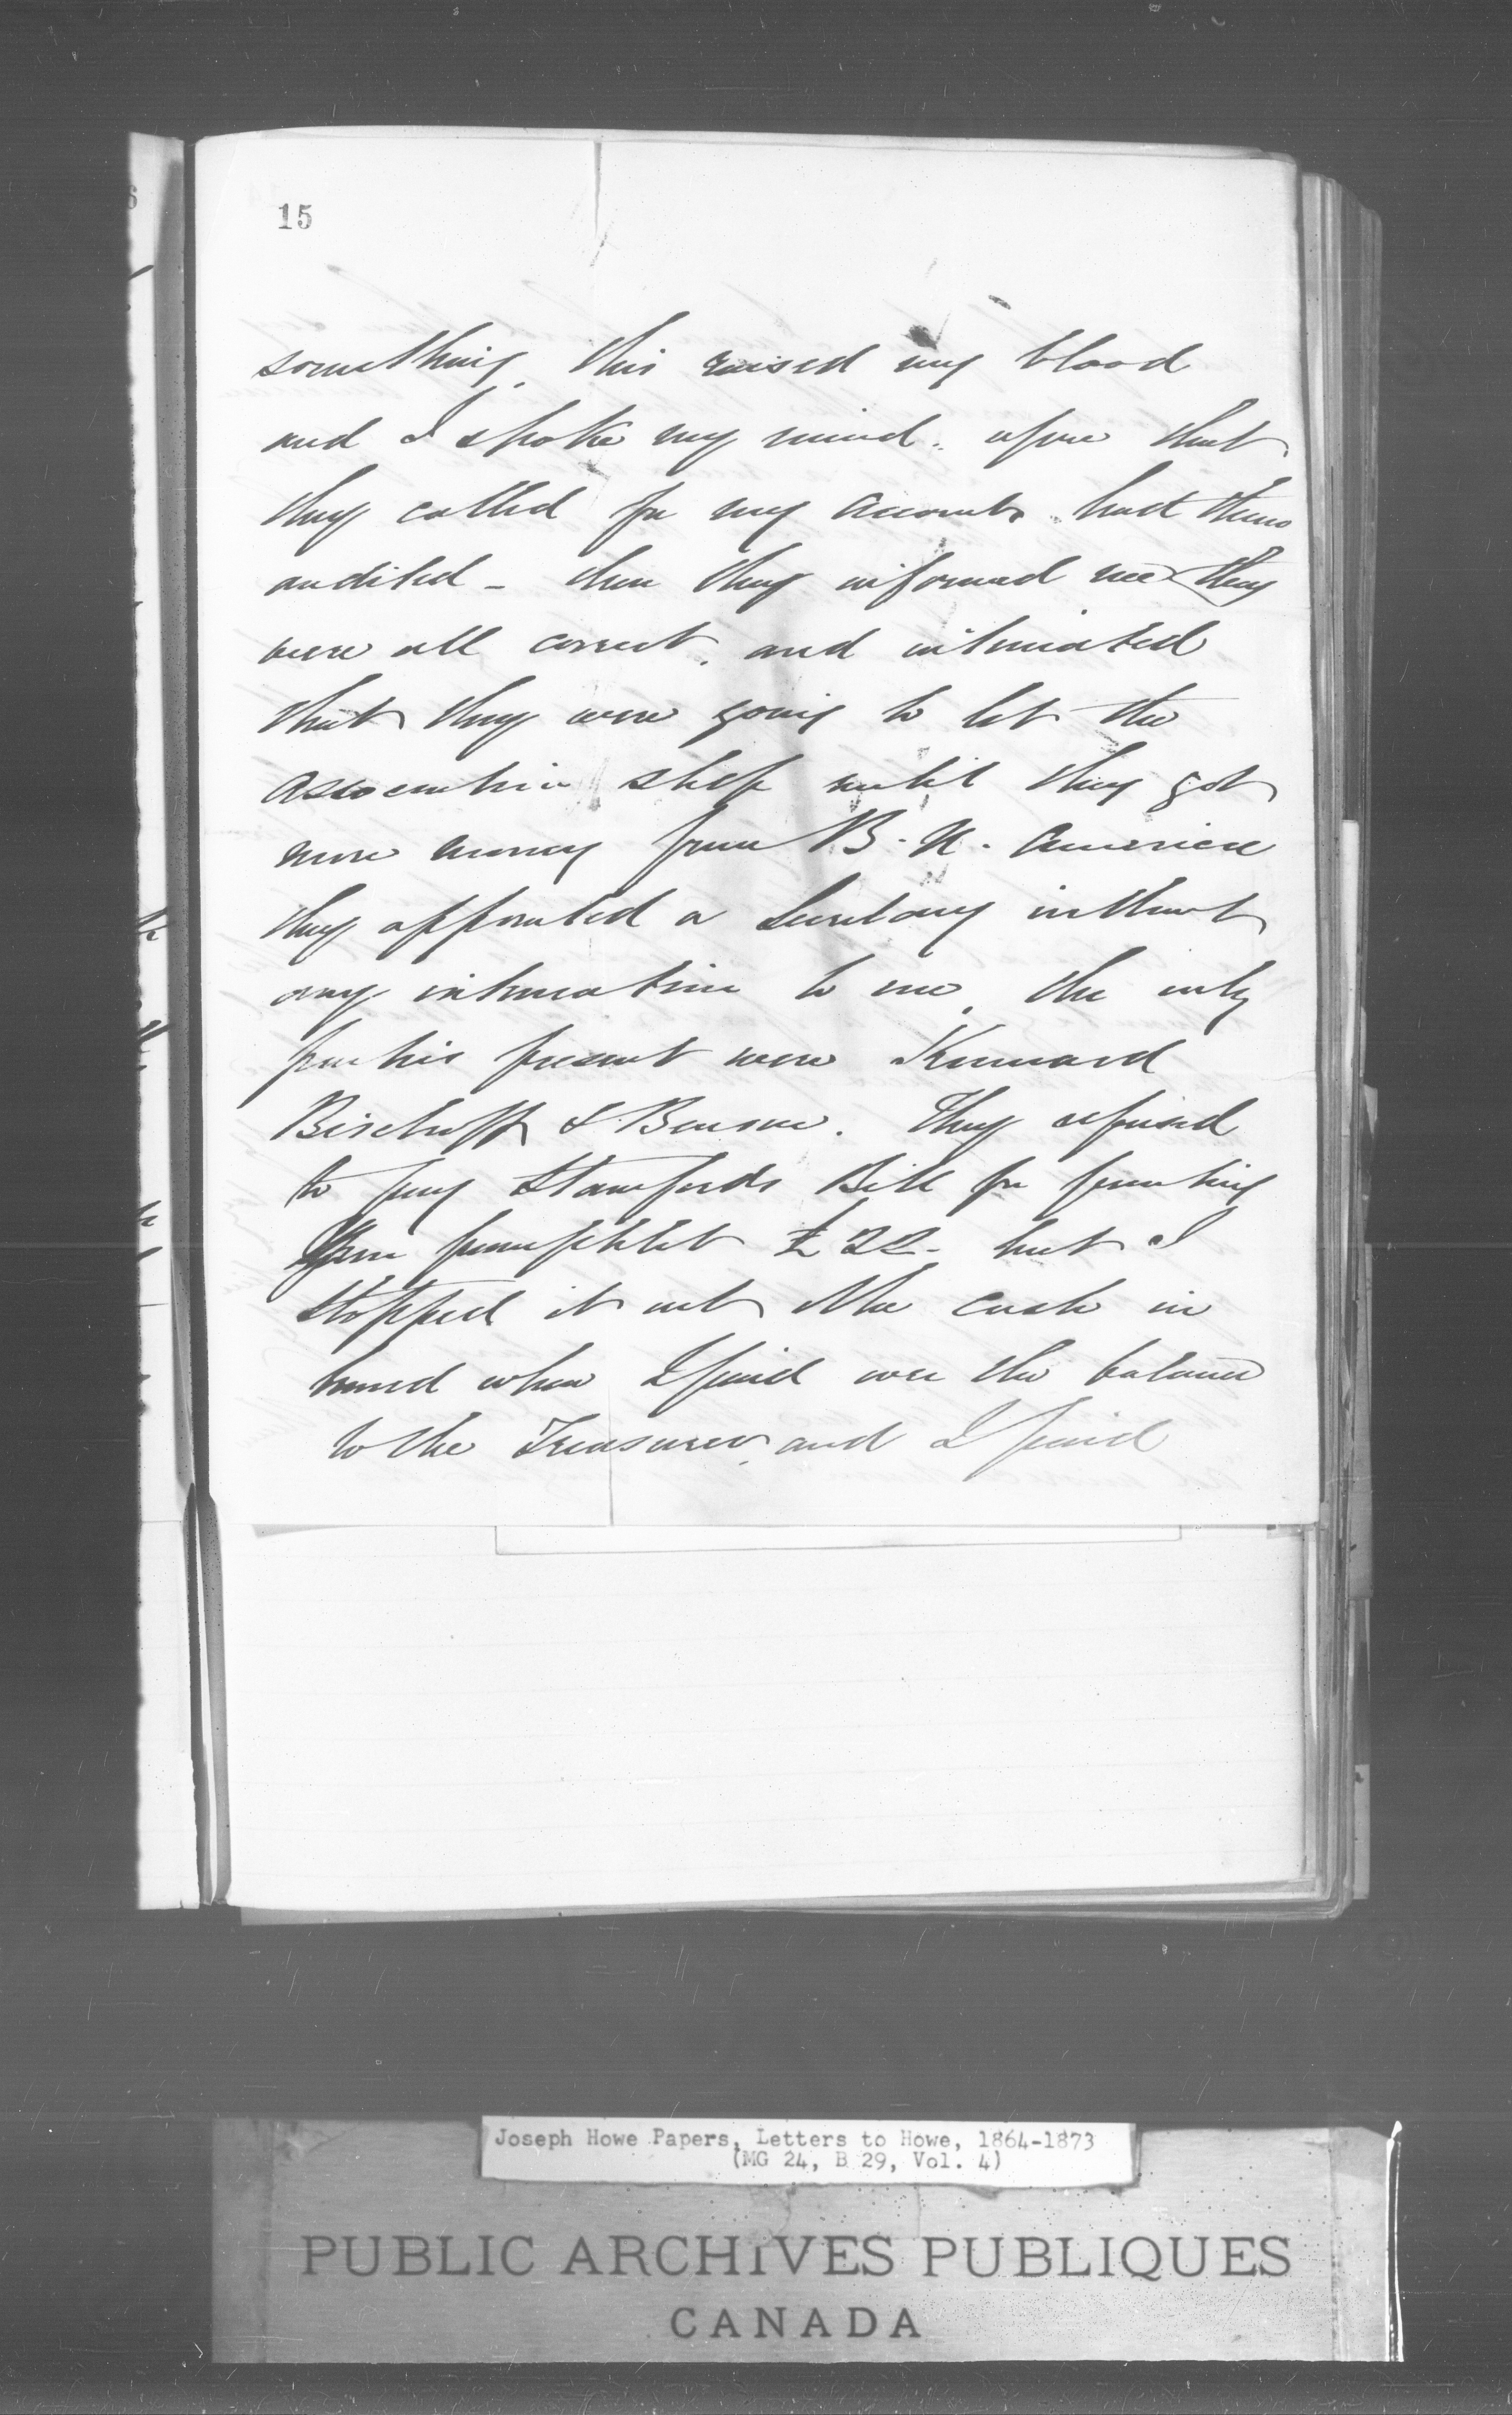 15
something. this raised my blood
and I spoke my mind. upon that
they called for my accounts. had them
audited - then they informed me they
were all correct. and intimated
that they were going to let the
association sleep until they got
more money from B. N. America
they appointed a Secretary without
any intimation to me. the only
parties present were Kinnaird
Bischoff & Benson. They refused
to pay Stanfords Bill for printing
Your pamphlet £22- but I
stopped it out of the cash in
hand when I paid over the balance
to the Treasurer. and I paid
Joseph Howe Papers, Letters to Howe, 1864-1873
(MG 24, B 29, Vol. 4)
PUBLIC ARCHIVES PUBLIQUES
CANADA